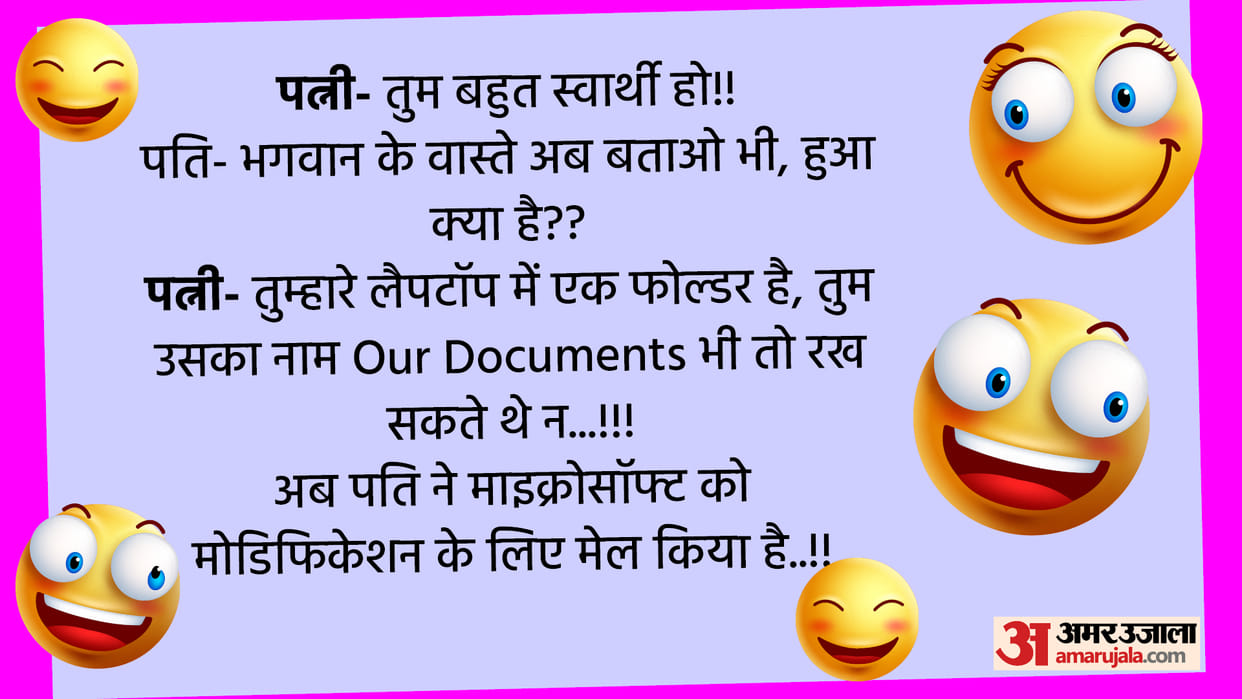 पत्नी- तुम बहुत स्वार्थी हो!!
पति- भगवान के वास्ते अब बताओ भी, हुआ
क्या है??
पत्नी- तुम्हारे लैपटॉप में एक फोल्डर है, तुम
उसका नाम Our Documents भी तो रख
सकते थे न...!!!
अब पति ने माइक्रोसॉफ्ट को
मोडिफिकेशन के लिए मेल किया है..!!
अ अमर उजाला
amarujala.com